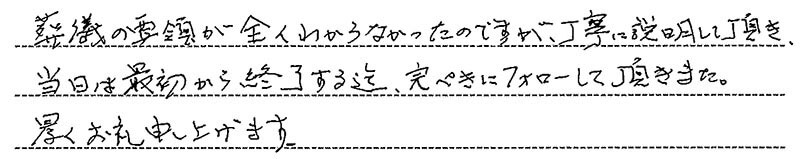 葬儀の要領が全くわからなかったのですが、丁寧に説明して頂き、
当日は最初から終了する迄、完ぺきにフォローして頂きました。
厚くお礼申し上げます。